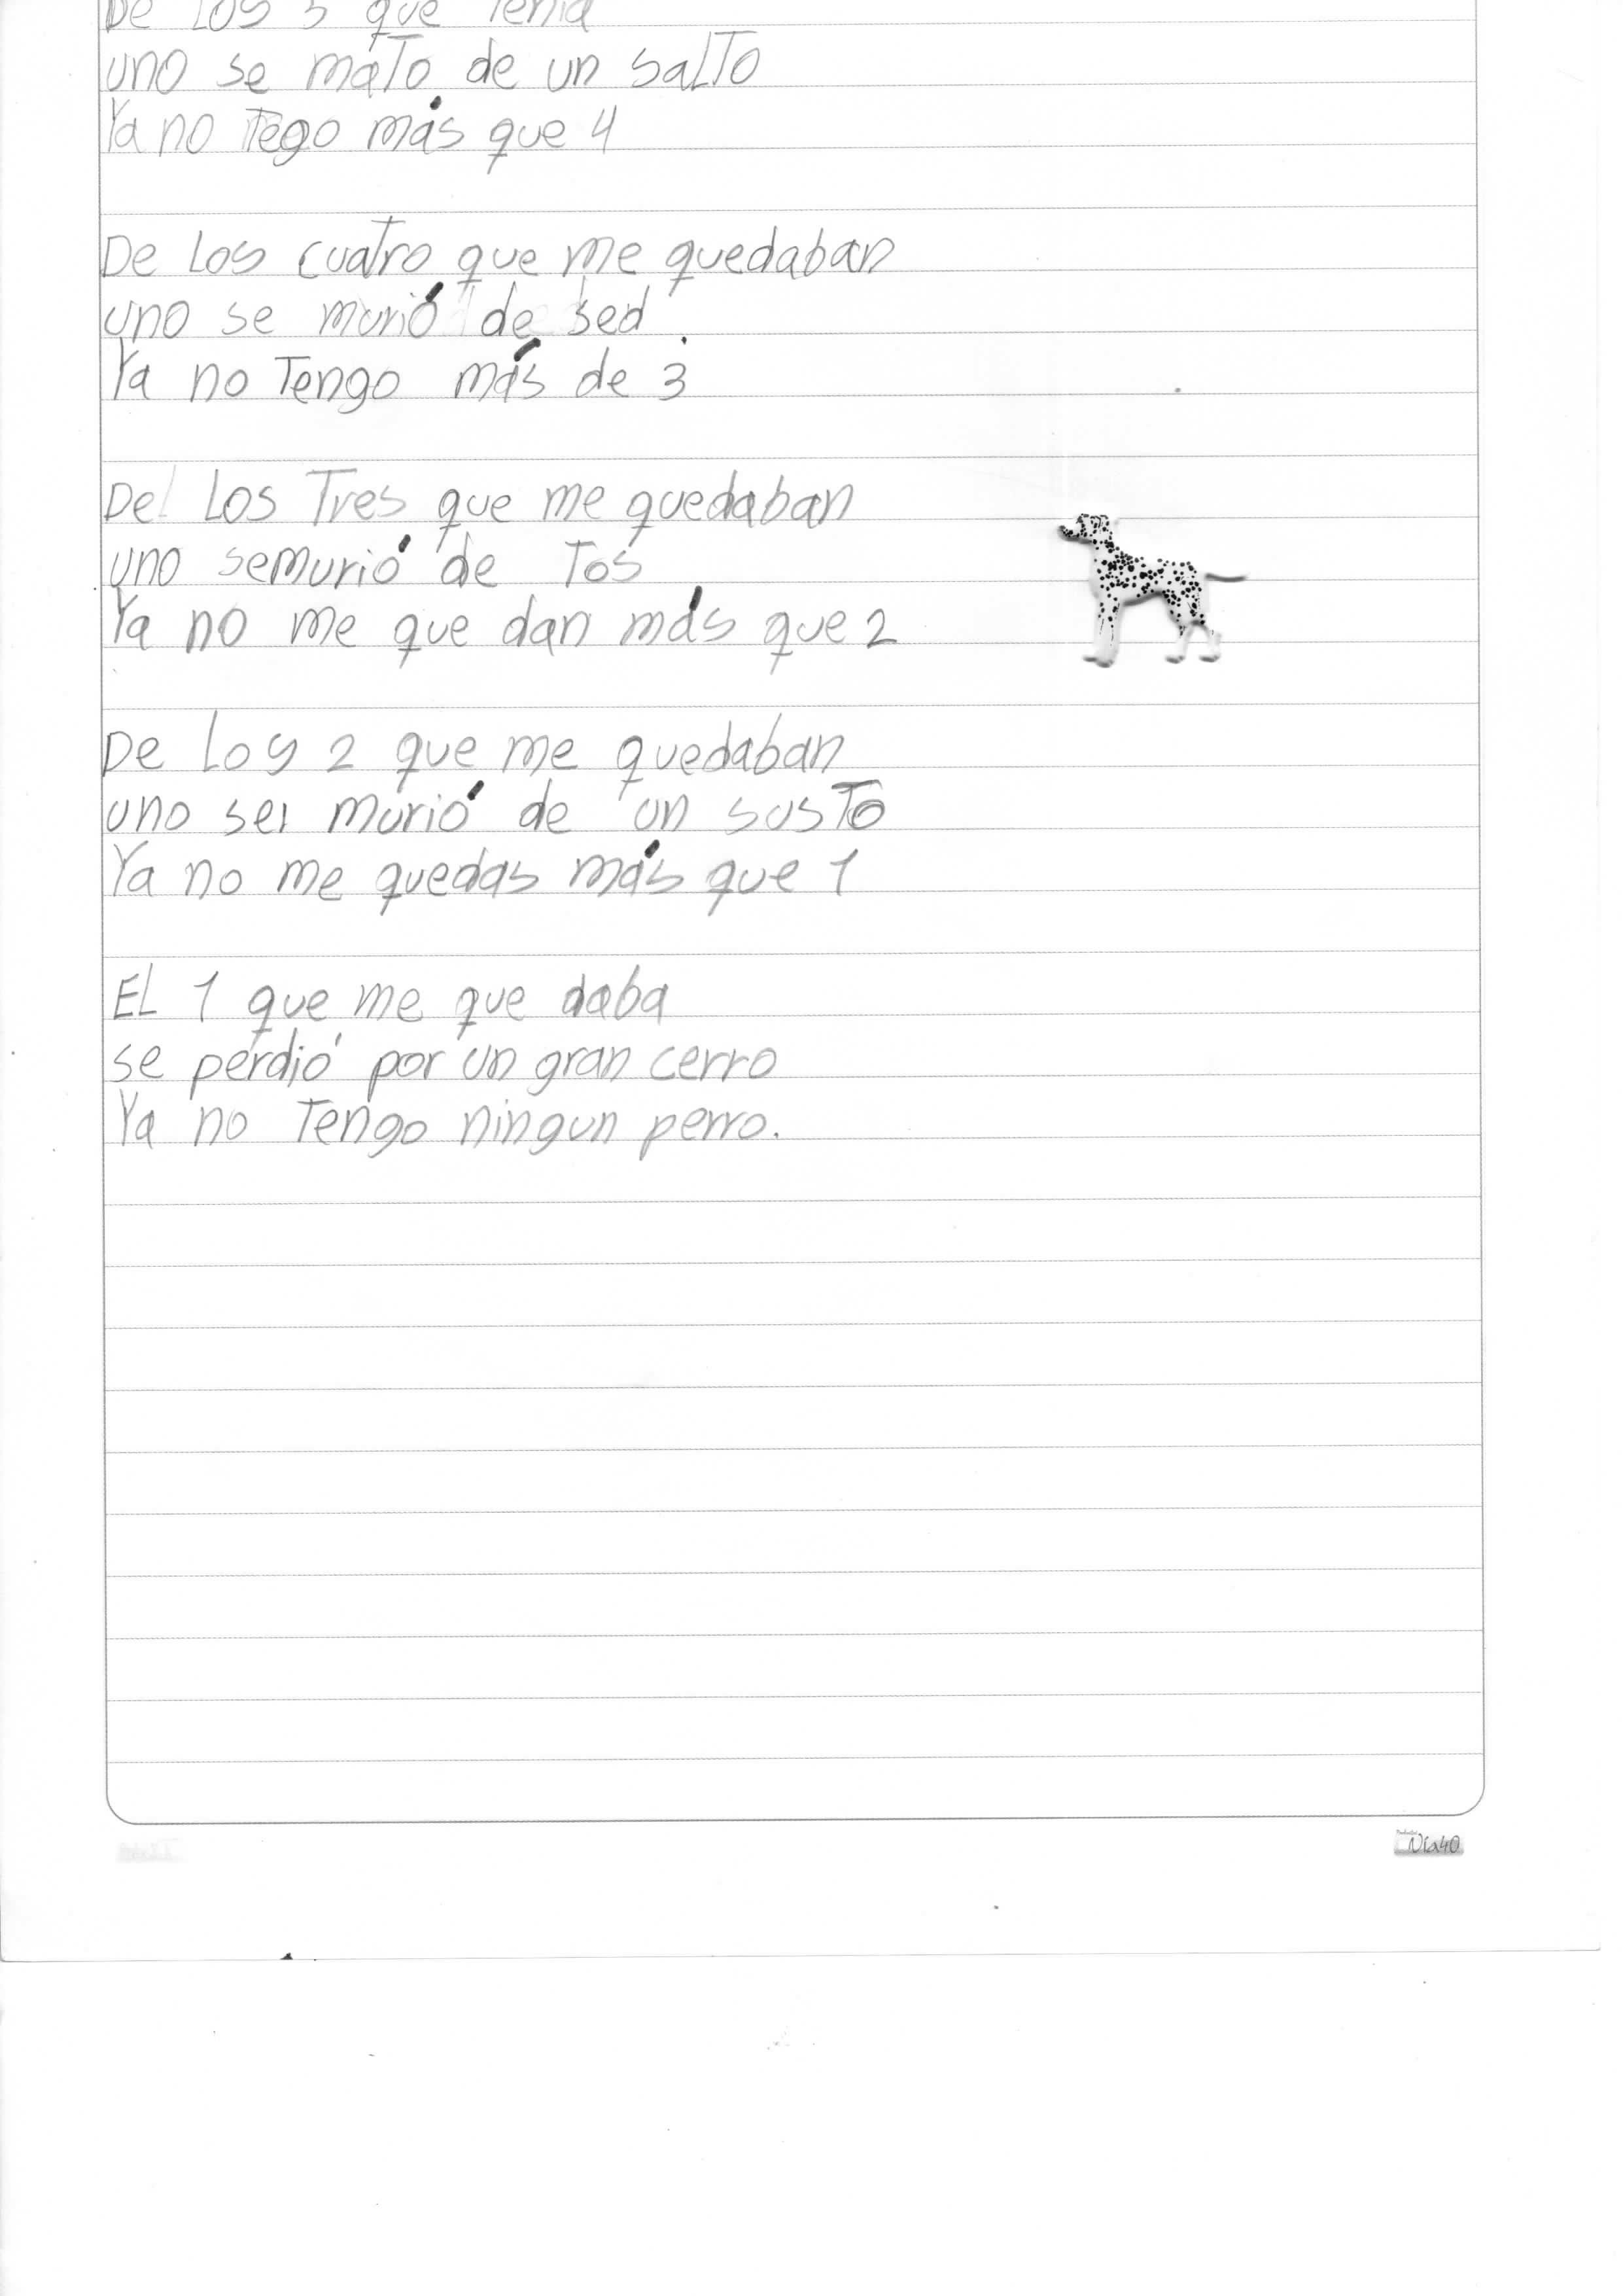 De Los 5 que Tenia
uno se mato de un salTo
Ya no Tego más que 4
De Los cuatro que me quedaban
uno se murió de sed
Ya no Tengo más de 3
De Los Tres que me quedaban
uno semurió de Tos
Ya no me que dan más que 2
De Los 2 que me quedaban
uno se murió de un susTo
Ya no me quedas más que 1
EL 1 que me que daba
se perdió por un gran cerro
Ya no Tengo ningun perro.